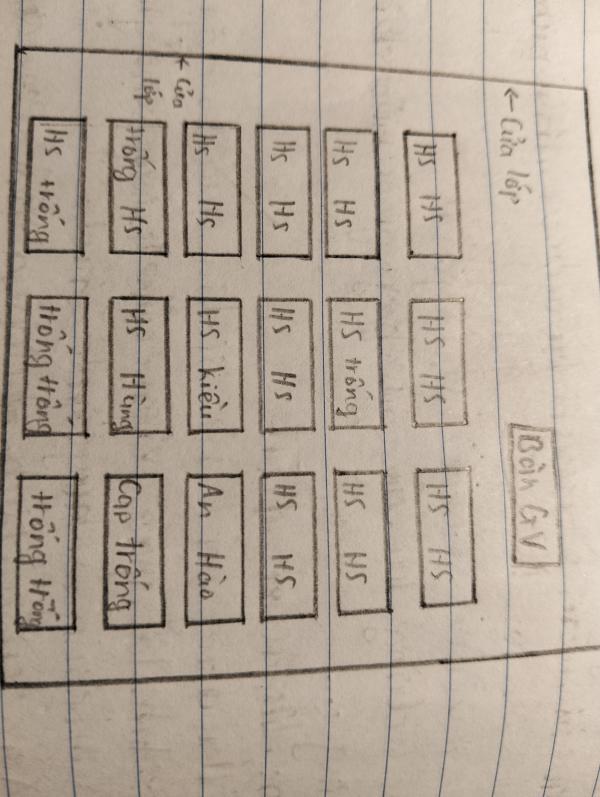 ← Cửa lớp
Bàn GV
HS HS
HS HS
HS HS
HS HS
HS trống
HS HS
HS HS
HS HS
HS HS
HS HS
HS Kiều
An Hào
← Cửa
lớp
trống HS
HS Hùng
trống
HS trống
trống trống
trống trống